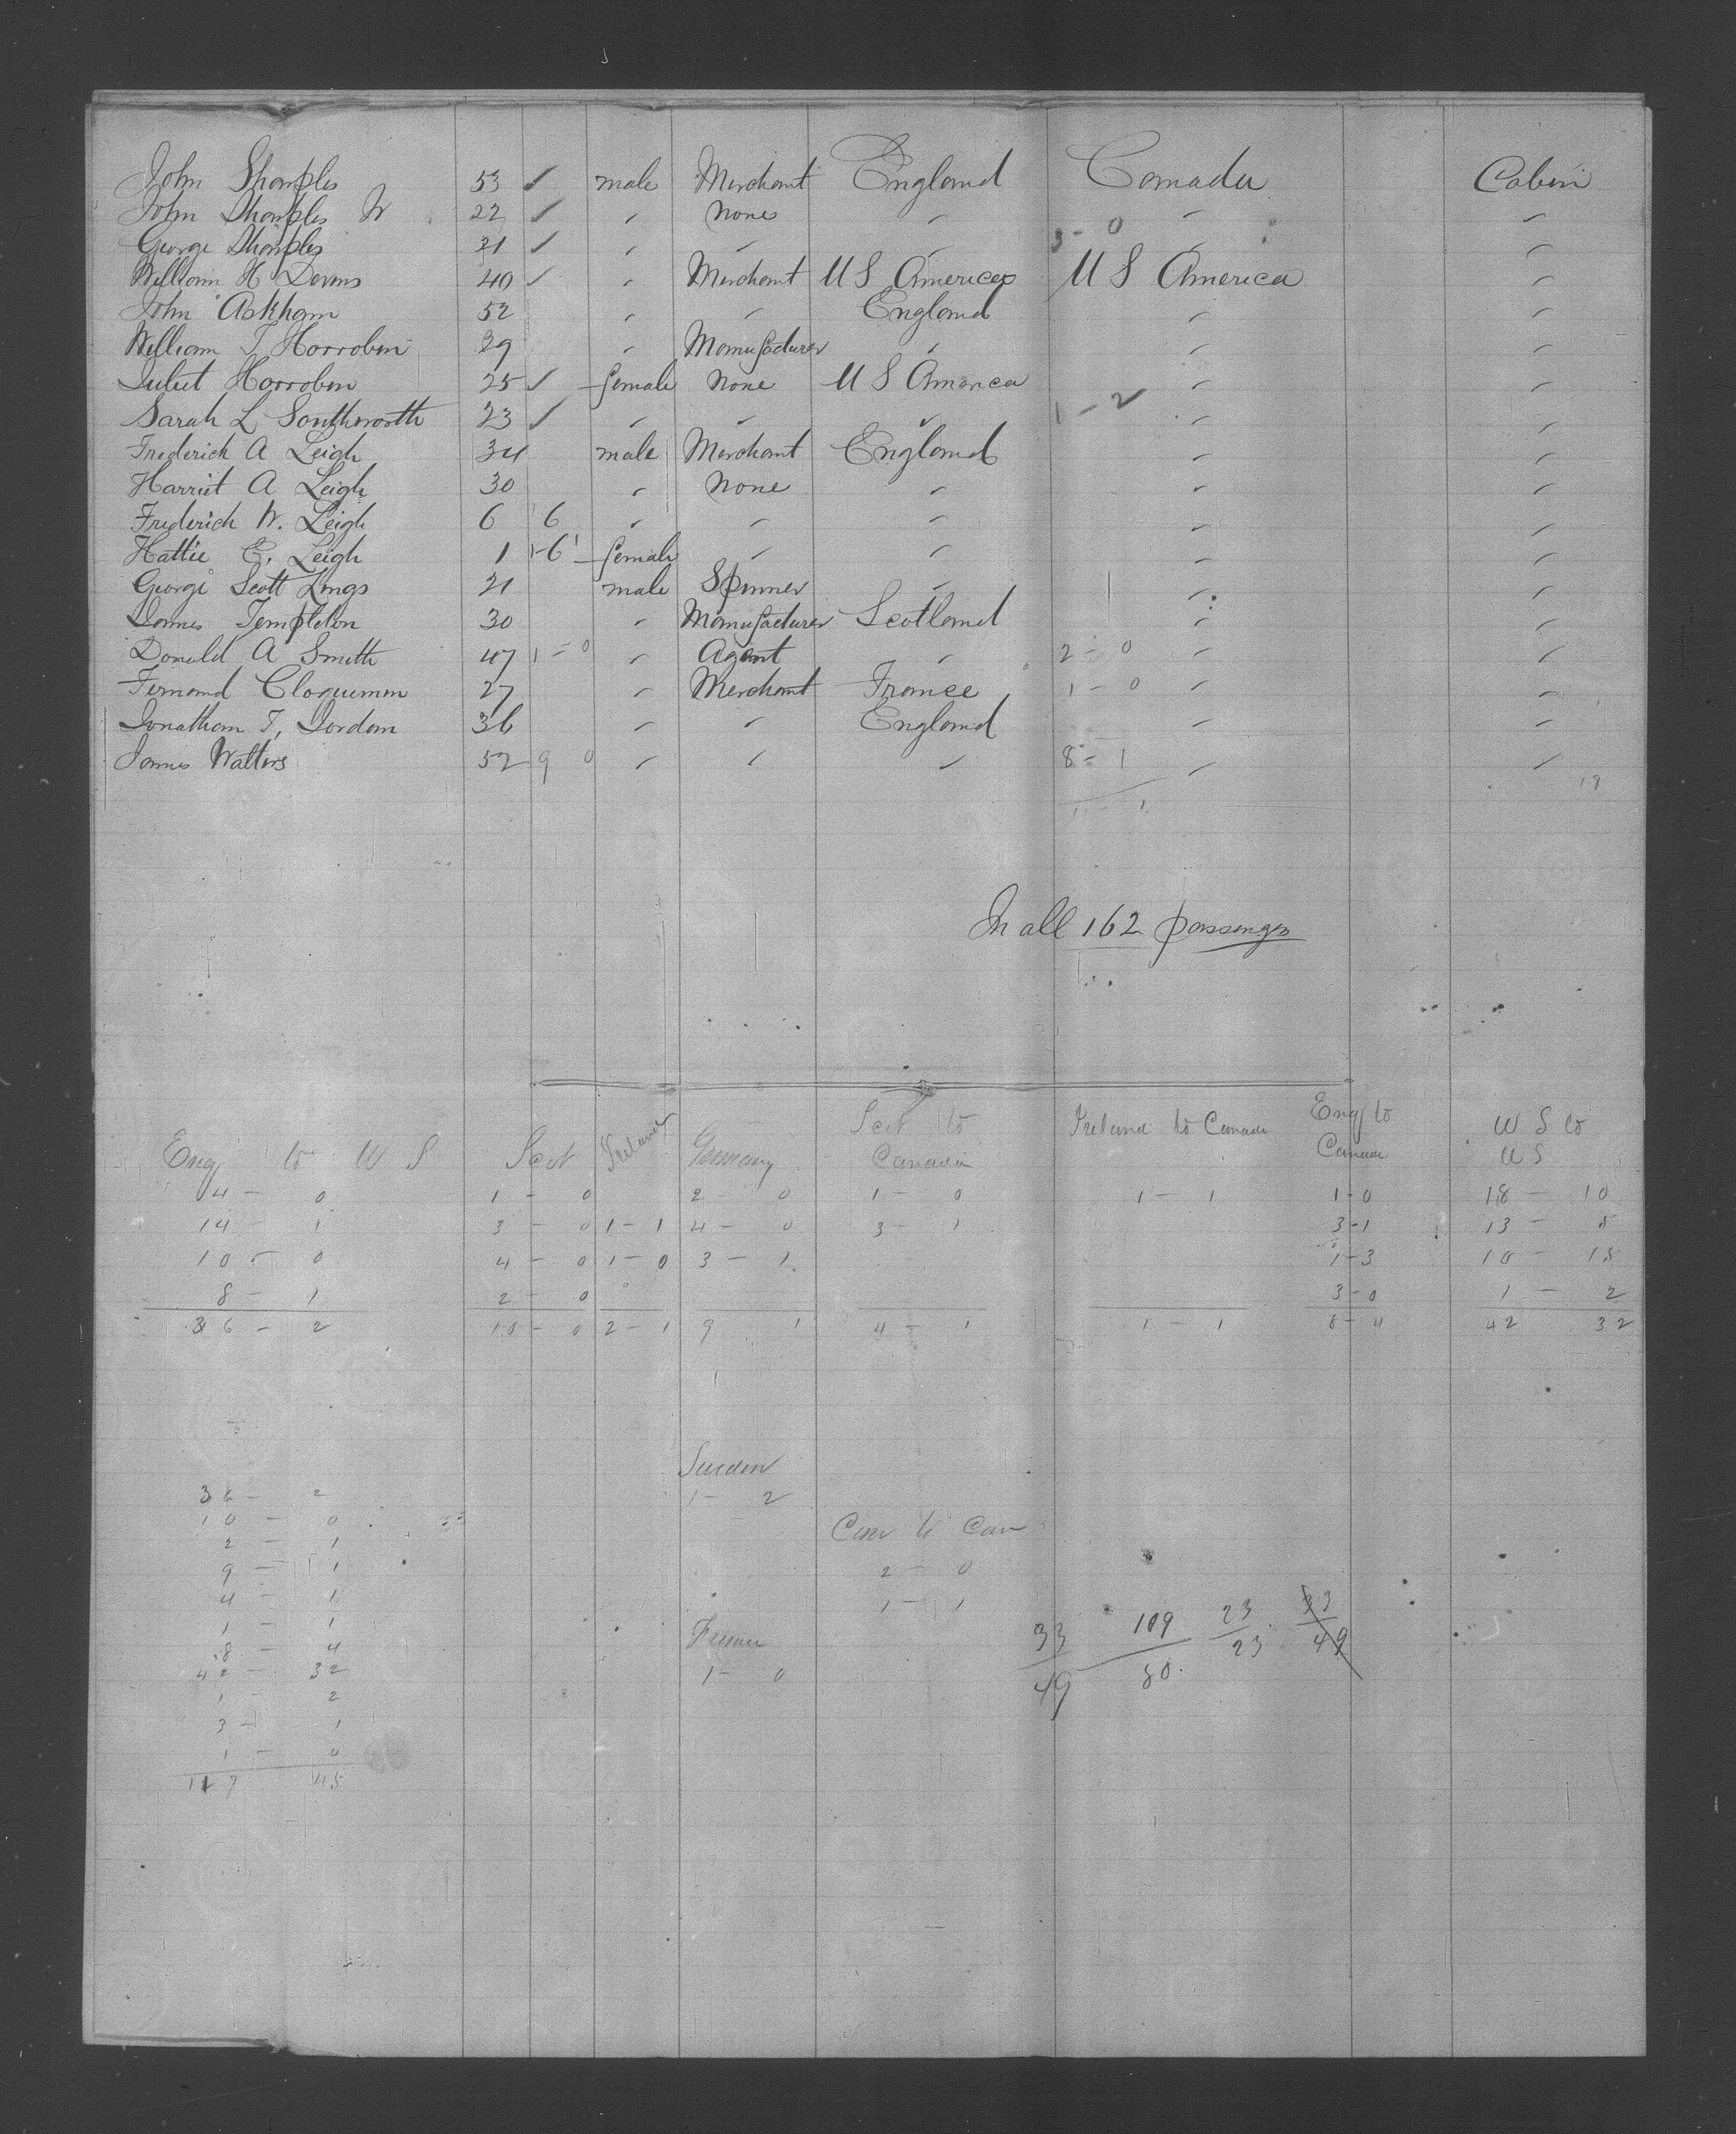 John Sharples 53 ✓ male Merchant England Canada Cabin
John Sharples Jr 22 ✓ " none " " "
George Sharples 21 ✓ " " " 3 - 0 " "
William H Devens 40 ✓ " Merchant U S America U S America "
John Askham 52 " " England " "
William T Horrobin 29 " Manufacturer " " "
Juliet Horrobin 25 ✓ female none U S America " "
Sarah L Southworth 23 ✓ " " " 1 - 2 " "
Frederick A Leigh 34 male Merchant England " "
Harriet A Leigh 30 " none " " "
Frederick W. Leigh 6 6 " " " " "
Hattie E. Leigh 1 1-6 female " " " "
George Scott Lings 21 male Spinner " " "
James Templeton 30 " Manufacturer Scotland " "
Donald A Smith 47 1 - 0 " Agent " 2 - 0 " "
Fernand Cloquemin 27 " Merchant France 1 - 0 " "
Jonathan T, Jordan 36 " " England " "
James Watters 52 9 0 " " " 8 - 1 " "
18
11 - 1
In all 162 passengs
Eng to U S Scot Ireland Germany Scot to Canada Ireland to Canada Eng to Canada U S to U S
4 - 0 1 - 0 2 - 0 1 - 0 1 - 1 1-0 18 - 10
14 - 1 3 - 0 1 - 1 4 - 0 3 - 1 3-1 13 - 5
10 - 0 4 - 0 1 - 0 3 - 1 1-3 10 - 15
8 - 1 2 - 0 3-0 1 - 2
36 - 2 10 - 0 2 - 1 9 1 4 - 1 1 - 1 8 - 4 42 32
Sweden
36 - 2 1 - 2
10 - 0 Can to Can
2 - 1
9 - 1 2 - 0
4 - 1 1 - 1
1 - 1 France 33 109 23 33
8 - 4 49 80 23 49
42 - 32 1 - 0
1 - 2
3 - 1
1 - 0
117 45